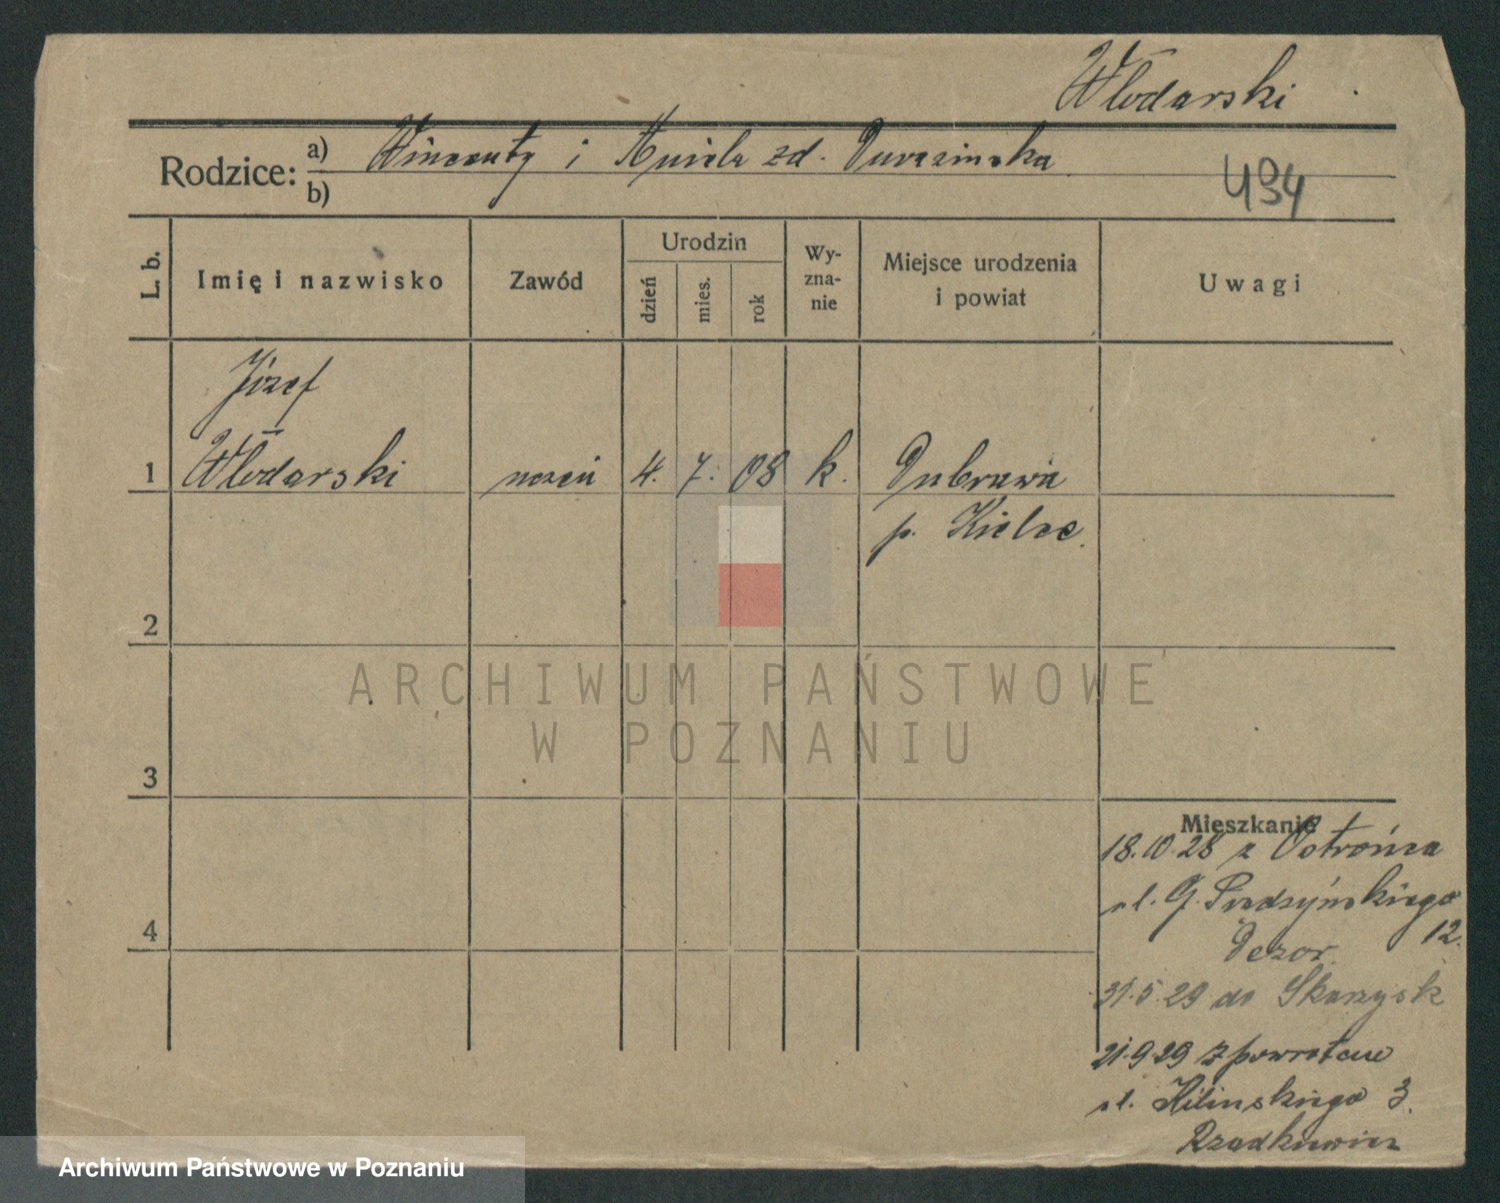 Włodarski
Rodzice: a) Wincenty i Aniela zd.
b)
494
L. b.
Imię i nazwisko
Zawód
Urodzin
dzień
mies.
rok
Wy-
zna-
nie
Miejsce urodzenia
i powiat
Uwagi
Józef
1 Włodarski uczeń 4. 7. 08 k. Dubrawa
p. Kielce.
2
3
4
Mieszkanie
18.10.28 z
ul. G. 12.
Dezor.
31.5.29 do Skarżysk
21.9.29 z powrotem
ul. Kilinskiego 3.
Rzadkiewicz
ARCHIWUM PAŃSTWOWE
W POZNANIU
Archiwum Państwowe w Poznaniu